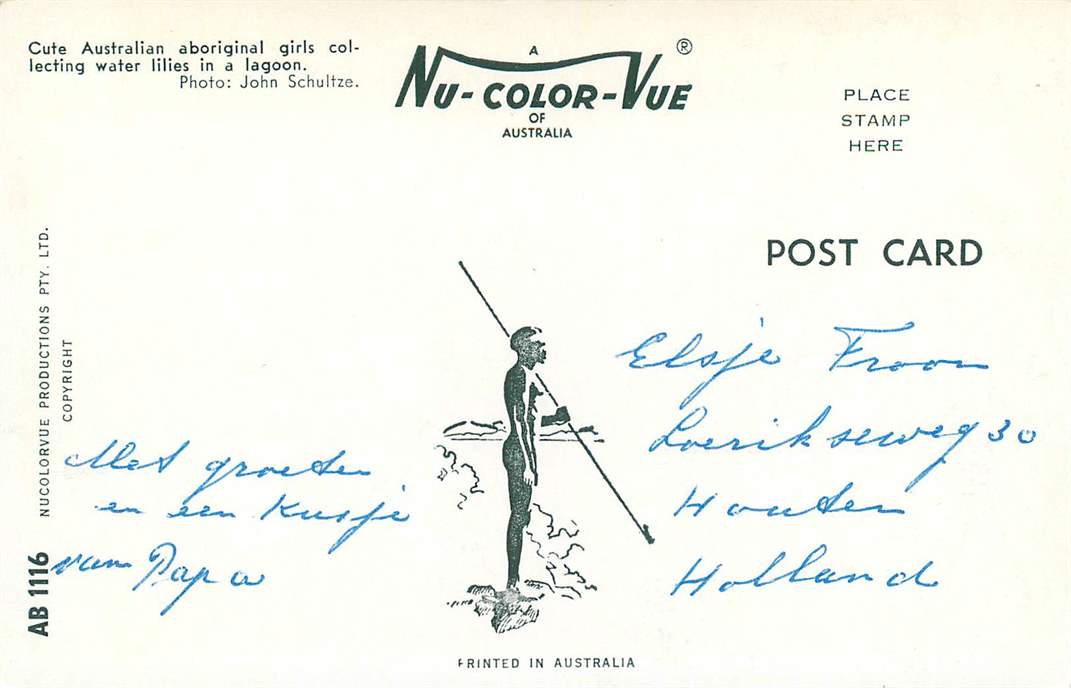 Cute Australian aboriginal girls col-
lecting water lilies in a lagoon.
Photo: John Schultze.
A
NU-COLOR-VUE ®
OF
AUSTRALIA
PLACE
STAMP
HERE
POST CARD
NUCOLORVUE PRODUCTIONS PTY. LTD.
COPYRIGHT
AB 1116
Met groeten
en een Kusje
van Papa
Elsje Froon
Loerikseweg 30
Houten
Holland
PRINTED IN AUSTRALIA